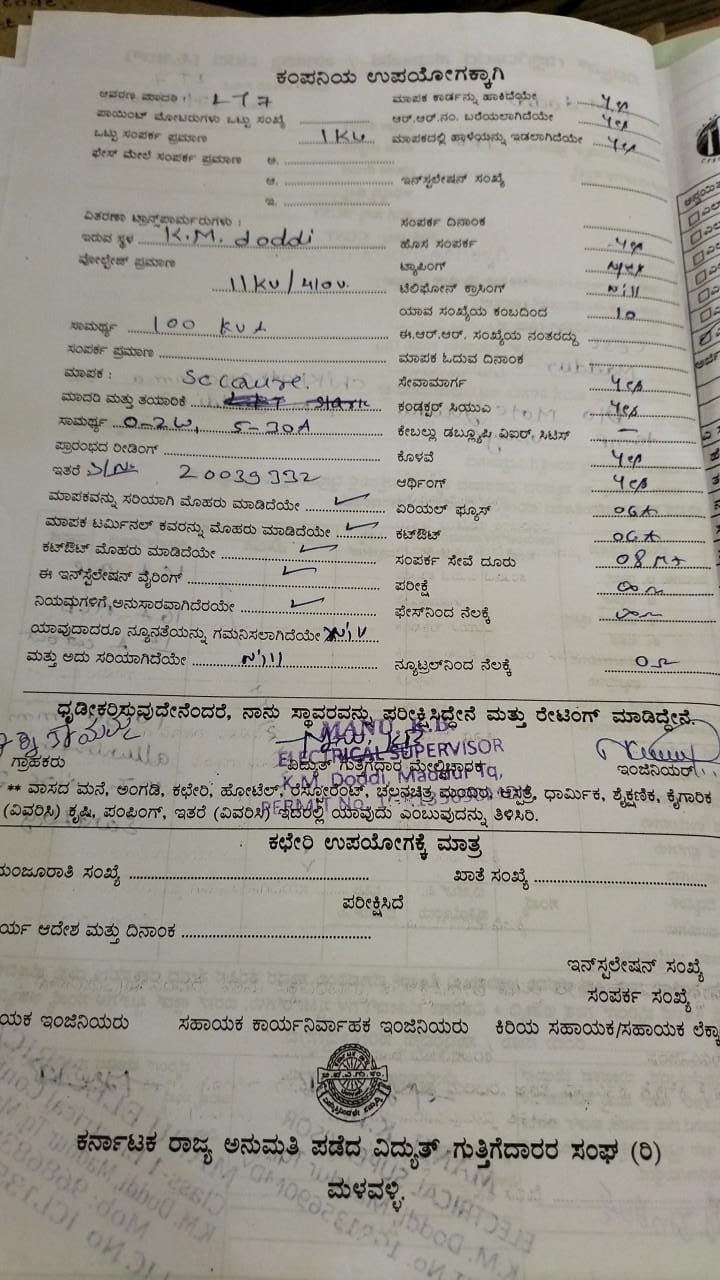 ಕಂಪನಿಯ ಉಪಯೋಗಕ್ಕಾಗಿ
ಆವರಣ ಮಾದರಿ : LT 7 ಮಾಪಕ ಕಾರ್ಡನ್ನು ಹಾಕಿದೆಯೇ : Yes
ಪಾಯಿಂಟ್ ಮೋಟರುಗಳು ಒಟ್ಟು ಸಂಖ್ಯೆ ಆರ್.ಆರ್.ನಂ. ಬರೆಯಲಾಗಿದೆಯೇ Yes
ಒಟ್ಟು ಸಂಪರ್ಕ ಪ್ರಮಾಣ 1KW ಮಾಪಕದಲ್ಲಿ ಹಾಳೆಯನ್ನು ಇಡಲಾಗಿದೆಯೇ Yes
ಫೇಸ್ ಮೇಲೆ ಸಂಪರ್ಕ ಪ್ರಮಾಣ ಅ.
ಆ. ಇನ್‌ಸ್ಟಲೇಷನ್ ಸಂಖ್ಯೆ
ಇ.
ವಿತರಣಾ ಟ್ರಾನ್ಸ್‌ಫಾರ್ಮರುಗಳು : ಸಂಪರ್ಕ ದಿನಾಂಕ
ಇರುವ ಸ್ಥಳ K.M. doddi ಹೊಸ ಸಂಪರ್ಕ Yes
ವೋಲ್ಟೇಜ್ ಪ್ರಮಾಣ ಟ್ಯಾಪಿಂಗ್
11KV/410V. ಟೆಲಿಫೋನ್ ಕ್ರಾಸಿಂಗ್ Nill
ಯಾವ ಸಂಖ್ಯೆಯ ಕಂಬದಿಂದ 10
ಸಾಮರ್ಥ್ಯ 100 KVA ಈ.ಆರ್.ಆರ್. ಸಂಖ್ಯೆಯ ನಂತರದ್ದು
ಸಂಪರ್ಕ ಪ್ರಮಾಣ ಮಾಪಕ ಓದುವ ದಿನಾಂಕ
ಮಾಪಕ : ಸೇವಾಮಾರ್ಗ Yes
ಮಾದರಿ ಮತ್ತು ತಯಾರಿಕೆ ಕಂಡಕ್ಟರ್ ಸಿಯುಎ Yes
ಸಾಮರ್ಥ್ಯ 5-30A ಕೇಬಲ್ಲು ಡಬ್ಲ್ಯೂಪಿ ವಿಐರ್, ಸಿಟಿಸ್ –
ಪ್ರಾರಂಭದ ರೀಡಿಂಗ್ ಕೊಳವೆ Yes
ಇತರೆ : S/No 20039332 ಆರ್ಥಿಂಗ್ Yes
ಮಾಪಕವನ್ನು ಸರಿಯಾಗಿ ಮೊಹರು ಮಾಡಿದೆಯೇ ✓ ಏರಿಯಲ್ ಫ್ಯೂಸ್ OGA
ಮಾಪಕ ಟರ್ಮಿನಲ್ ಕವರನ್ನು ಮೊಹರು ಮಾಡಿದೆಯೇ ✓ ಕಟ್‌ಔಟ್ OGA
ಕಟ್‌ಔಟ್ ಮೊಹರು ಮಾಡಿದೆಯೇ ✓ ಸಂಪರ್ಕ ಸೇವೆ ದೂರು
ಈ ಇನ್‌ಸ್ಟೆಲೇಷನ್ ವೈರಿಂಗ್ ✓ ಪರೀಕ್ಷೆ ∞
ನಿಯಮಗಳಿಗೆ ಅನುಸಾರವಾಗಿದೆರಯೇ ✓ ಫೇಸ್‌ನಿಂದ ನೆಲಕ್ಕೆ ∞
ಯಾವುದಾದರೂ ನ್ಯೂನತೆಯನ್ನು ಗಮನಿಸಲಾಗಿದೆಯೇ
ಮತ್ತು ಅದು ಸರಿಯಾಗಿದೆಯೇ Nill ನ್ಯೂಟ್ರಲ್‌ನಿಂದ ನೆಲಕ್ಕೆ 0Ω
ಧೃಡೀಕರಿಸುವುದೇನೆಂದರೆ, ನಾನು ಸ್ಥಾವರವನ್ನು ಪರೀಕ್ಷಿಸಿದ್ದೇನೆ ಮತ್ತು ರೇಟಿಂಗ್ ಮಾಡಿದ್ದೇನೆ.
MANU. K.B
ELECTRICAL SUPERVISOR
ಗ್ರಾಹಕರು ವಿದ್ಯುತ್ ಗುತ್ತಿಗೆದಾರ ಮೇಲ್ವಿಚಾರಕ ಇಂಜಿನಿಯರ್
K.M. Doddi, Maddur Tq,
PERMIT No.
** ವಾಸದ ಮನೆ, ಅಂಗಡಿ, ಕಛೇರಿ, ಹೋಟೆಲ್, ರೆಸ್ಟೋರೆಂಟ್, ಚಲನಚಿತ್ರ ಮಂದಿರು, ಆಸ್ಪತ್ರೆ, ಧಾರ್ಮಿಕ, ಶೈಕ್ಷಣಿಕ, ಕೈಗಾರಿಕೆ
(ವಿವರಿಸಿ) ಕೃಷಿ, ಪಂಪಿಂಗ್, ಇತರೆ (ವಿವರಿಸಿ) ಇದರಲ್ಲಿ ಯಾವುದು ಎಂಬುವುದನ್ನು ತಿಳಿಸಿರಿ.
ಕಛೇರಿ ಉಪಯೋಗಕ್ಕೆ ಮಾತ್ರ
ಮಂಜೂರಾತಿ ಸಂಖ್ಯೆ ಖಾತೆ ಸಂಖ್ಯೆ
ಪರೀಕ್ಷಿಸಿದೆ
ರ್ಯ ಆದೇಶ ಮತ್ತು ದಿನಾಂಕ
ಇನ್‌ಸ್ಟಲೇಷನ್ ಸಂಖ್ಯೆ
ಸಂಪರ್ಕ ಸಂಖ್ಯೆ
ಯಕ ಇಂಜಿನಿಯರು ಸಹಾಯಕ ಕಾರ್ಯನಿರ್ವಾಹಕ ಇಂಜಿನಿಯರು ಕಿರಿಯ ಸಹಾಯಕ/ಸಹಾಯಕ ಲೆಕ್ಕಾ
ಕರ್ನಾಟಕ ರಾಜ್ಯ ಅನುಮತಿ ಪಡೆದ ವಿದ್ಯುತ್ ಗುತ್ತಿಗೆದಾರರ ಸಂಘ (ರಿ)
ಮಳವಳ್ಳಿ.